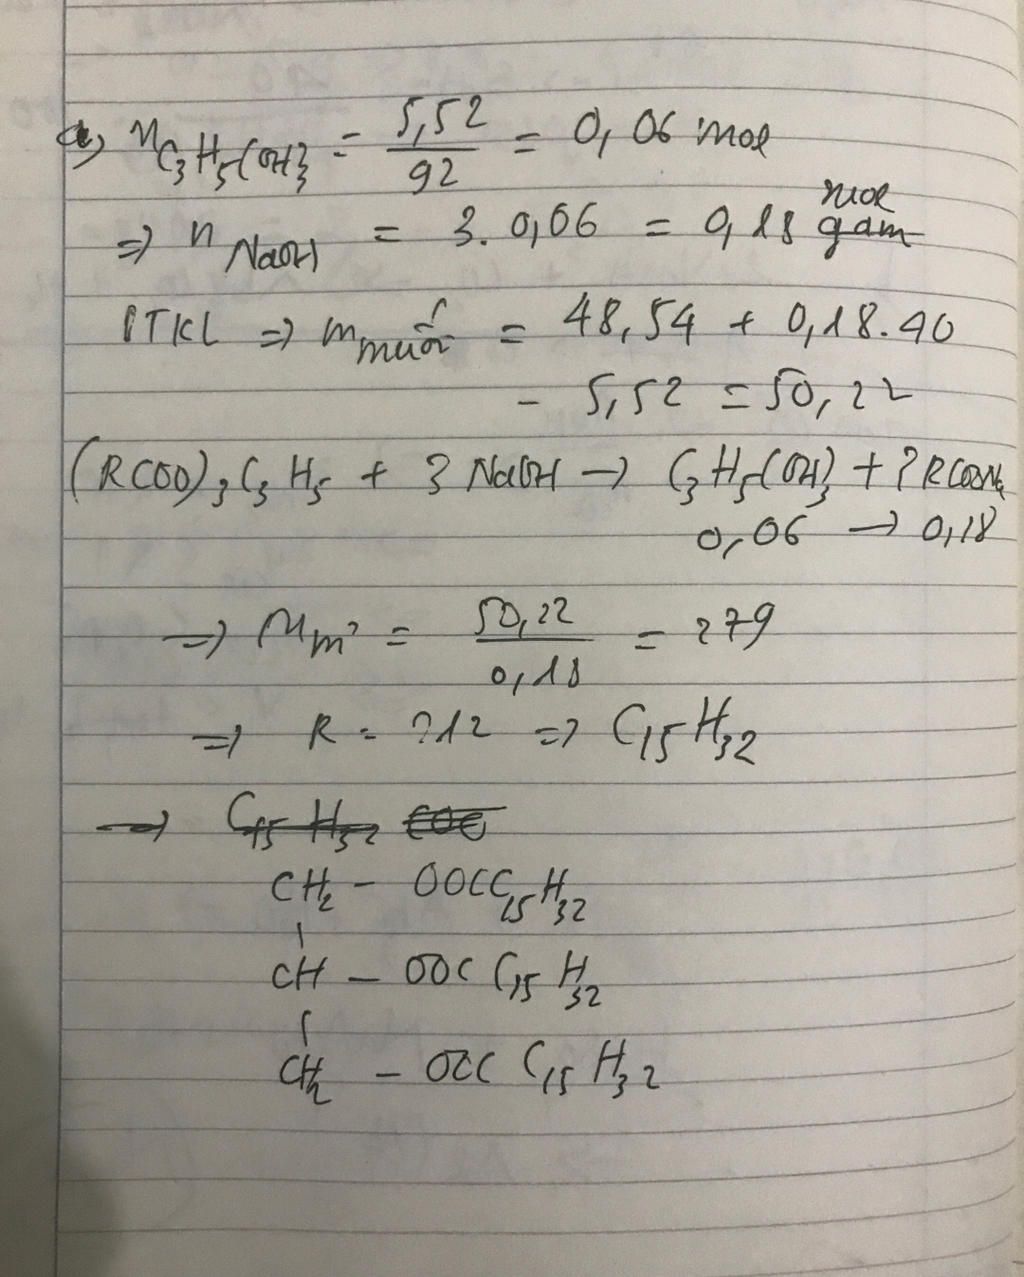 a) nC₃H₅(OH)₃ = 5,52/92 = 0,06 mol
⇒ n NaOH = 3. 0,06 = 0,18 mol gam
BTKL ⇒ m muối = 48,54 + 0,18.40
- 5,52 = 50,22
(RCOO)₃C₃H₅ + 3 NaOH → C₃H₅(OH)₃ + 3RCOONa
0,06 → 0,18
⇒ Mm' = 50,22/0,18 = 279
⇒ R = 212 ⇒ C₁₅H₃₂
→ C₁₅H₃₂
CH₂ - OOCC₁₅H₃₂
CH - OOC C₁₅H₃₂
CH₂ - OCC C₁₅H₃₂